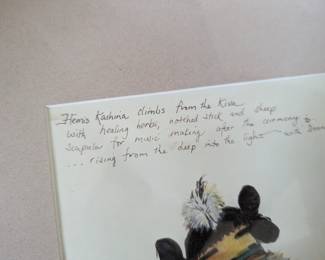 Hemis Kachina climbs from the Kiva
with healing herbs, notched stick and sheep
scapular for music making after the ceremony to
.... rising from the deep into the light — with